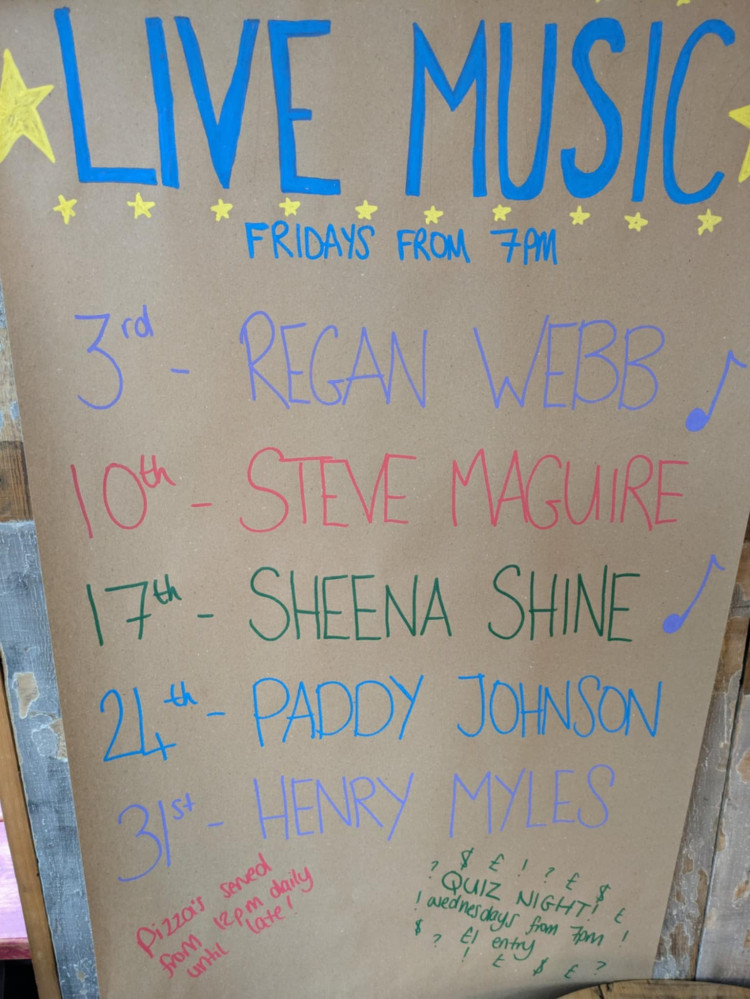 LIVE MUSIC
FRIDAYS FROM 7PM
3rd - REGAN WEBB
10th - STEVE MAGUIRE
17th - SHEENA SHINE
24th - PADDY JOHNSON
31st - HENRY MYLES
Pizza's served
from 12pm daily
until late!
? $ £ ! ? £ $
QUIZ NIGHT! £
! wednesdays from 7pm !
$ ? £1 entry
! £ $ £ ?